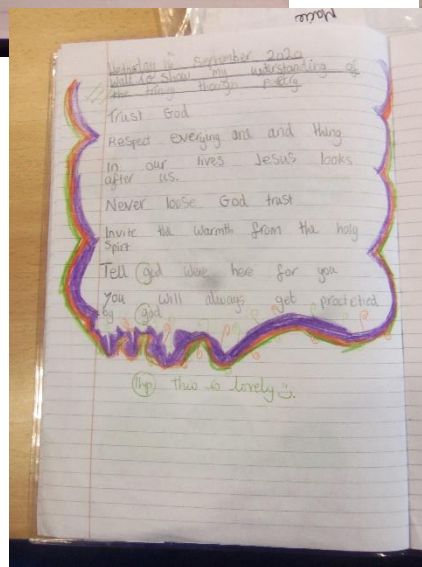 Macie
Wednesday September 2020
Walt: to show my understanding of
the trinity though poetry
Trust God
Respect everying and and thing
In our lives Jesus looks
after us.
Never loose God trust
Invite the warmth from the holy
Spirt
Tell god were here for you
You will always get practetied
by god
1hp this is lovely